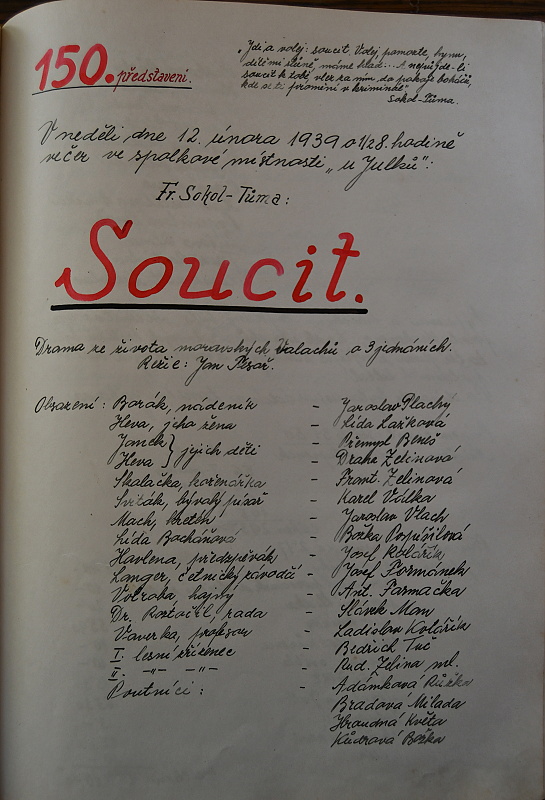 150. představení.
„Jdi a volej: soucit. Volej pomozte, hynu,
dětmi stůně, máme hlad... A nepůjde-li
soucit k tobě vler za ním do pokoje boháčů,
kde se ti promění v kriminál"
Sokol-Tůma.
V neděli dne 12. února 1939 o 1/2 8. hodině
večer ve spolkové místnosti „u Julků":
Fr. Sokol-Tůma:
Soucit.
Drama ze života moravských Valachů o 3 jednáních.
Režie: Jan Písař.
Obsazení: Barák, nádeník - Jaroslav Plachý
Heva, jeho žena - Lída Lašková
Janek } jejich děti - Přemysl Beneš
Heva - Draha Zelinová
Skalačka, kořenářka - Frant. Zelinová
Sviták, bývalý písař - Karel Vrlka
Mach, kretén - Jaroslav Vlach
Lída Bachářová - Božka Pospíšilová
Havlena, předzpěvák - Josef Kolářík
Langer, četnický závodčí - Josef Formánek
Votroba, hajný - Ant. Farmačka
Dr. Roztočil, rada - Slávek Man
Vaverka, profesor - Ladislav Kolářík
I. lesní zřízenec - Bedřich Tuč
II. -"- -"- Rud. Zelina ml.
Poutníci: - Adámková Růžka
Bradová Milada
Hraudná Květa
Kůdrová Božka